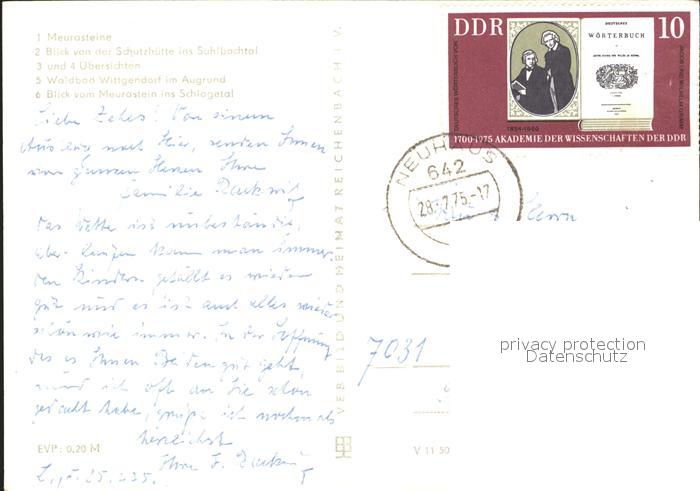 1 Meurasteine
2 Blick von der Schutzhütte ins Suhlbachtal
3 und 4 Übersichten
5 Waldbad Wittgendorf im Augrund
6 Blick vom Meurastein ins Schlagetal
Liebe Von einem
nach Hier, senden Ihnen
von ganzem Herzen Ihre
Familie
Das Wetter ist unbeständig,
aber kann man immer.
den Kindern gefällt es wieder
gut und es ist auch alles wieder
schön wie immer. In der Hoffnung
das es Ihnen Beiden gut geht
und ich oft an Sie schon
gedacht habe, grüße ich nochmals
herzlichst
Ihre F.
EVP: 0,20 M
VERBILDUNG HEIMAT REICHENBACH I. V.
V 11 50
DDR
10
DEUTSCHES WÖRTERBUCH VON
JACOB UND WILHELM GRIMM
DEUTSCHES
WÖRTERBUCH
1854-1960
1700-1975 AKADEMIE DER WISSENSCHAFTEN DER DDR
NEUHAUS
642
28.-7.75.-17
Herrn
7031
privacy protection
Datenschutz